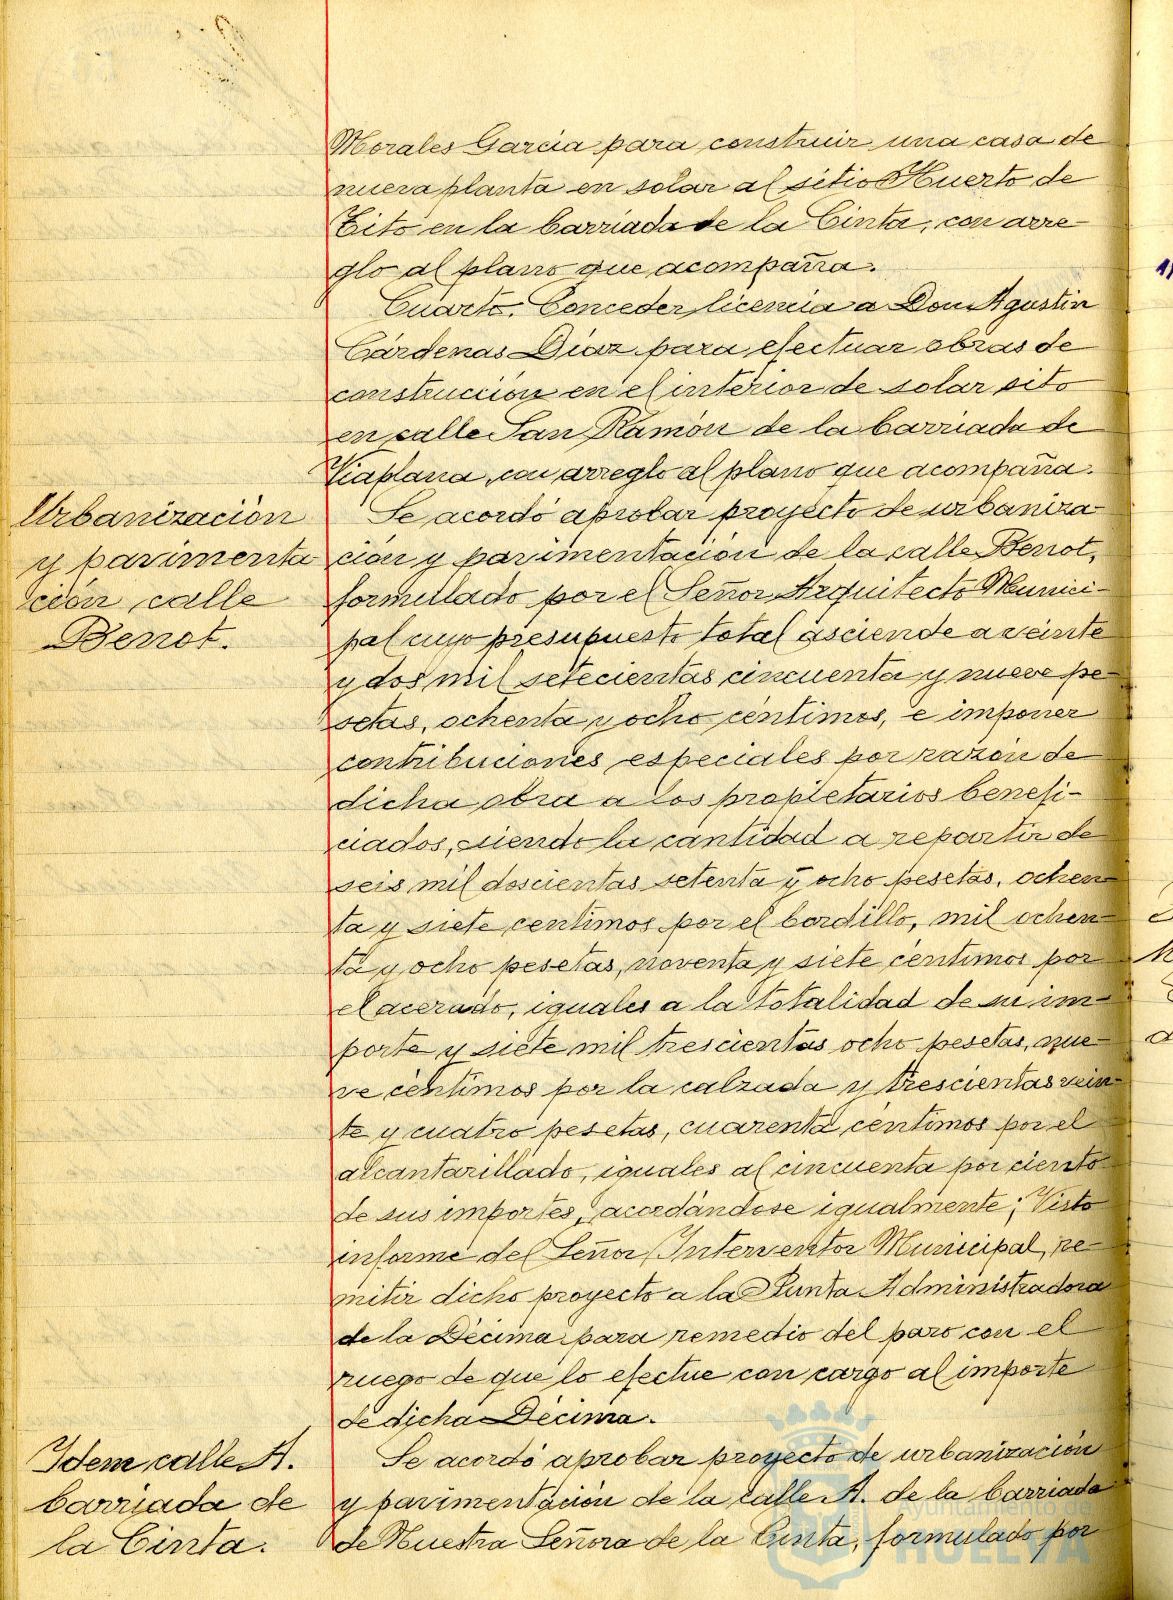 Morales García para construir una casa de
nueva planta en solar al sitio Huerto de
Tito en la barriada de la Cinta, con arre-
glo al plano que acompaña.
Cuarto. Conceder licencia a Don Agustin
Cárdenas Díaz para efectuar obras de
construcción en el interior de solar sito
en calle San Ramón de la barriada de
Viaplana, con arreglo al plano que acompaña.
Urbanización
y pavimenta
ción calle
Berrot.
Se acordó aprobar proyecto de urbaniza-
ción y pavimentación de la calle Berrot,
formulado por el Señor Arquitecto Munici-
pal cuyo presupuesto total asciende a veinte
y dos mil setecientas cincuenta y nueve pe-
setas, ochenta y ocho céntimos, e imponer
contribuciones especiales por razón de
dicha obra a los propietarios benefi-
ciados, siendo la cantidad a repartir de
seis mil doscientas setenta y ocho pesetas, ochen-
ta y siete centimos por el bordillo, mil ochen-
ta y ocho pesetas, noventa y siete céntimos por
el acerado, iguales a la totalidad de su im-
porte y siete mil trescientas ocho pesetas, nue-
ve céntimos por la calzada y trescientas vein-
te y cuatro pesetas, cuarenta céntimos por el
alcantarillado, iguales al cincuenta por ciento
de sus importes, acordándose igualmente; Visto
informe del Señor Interventor Municipal, re-
mitir dicho proyecto a la Junta Administradora
de la Décima para remedio del paro con el
ruego de que lo efectue con cargo al importe
de dicha Décima.
Idem calle A.
barriada de
la Cinta.
Se acordó aprobar proyecto de urbanización
y pavimentación de la calle A. de la barriada
de Nuestra Señora de la Cinta, formulado por
Ayuntamiento de
HUELVA